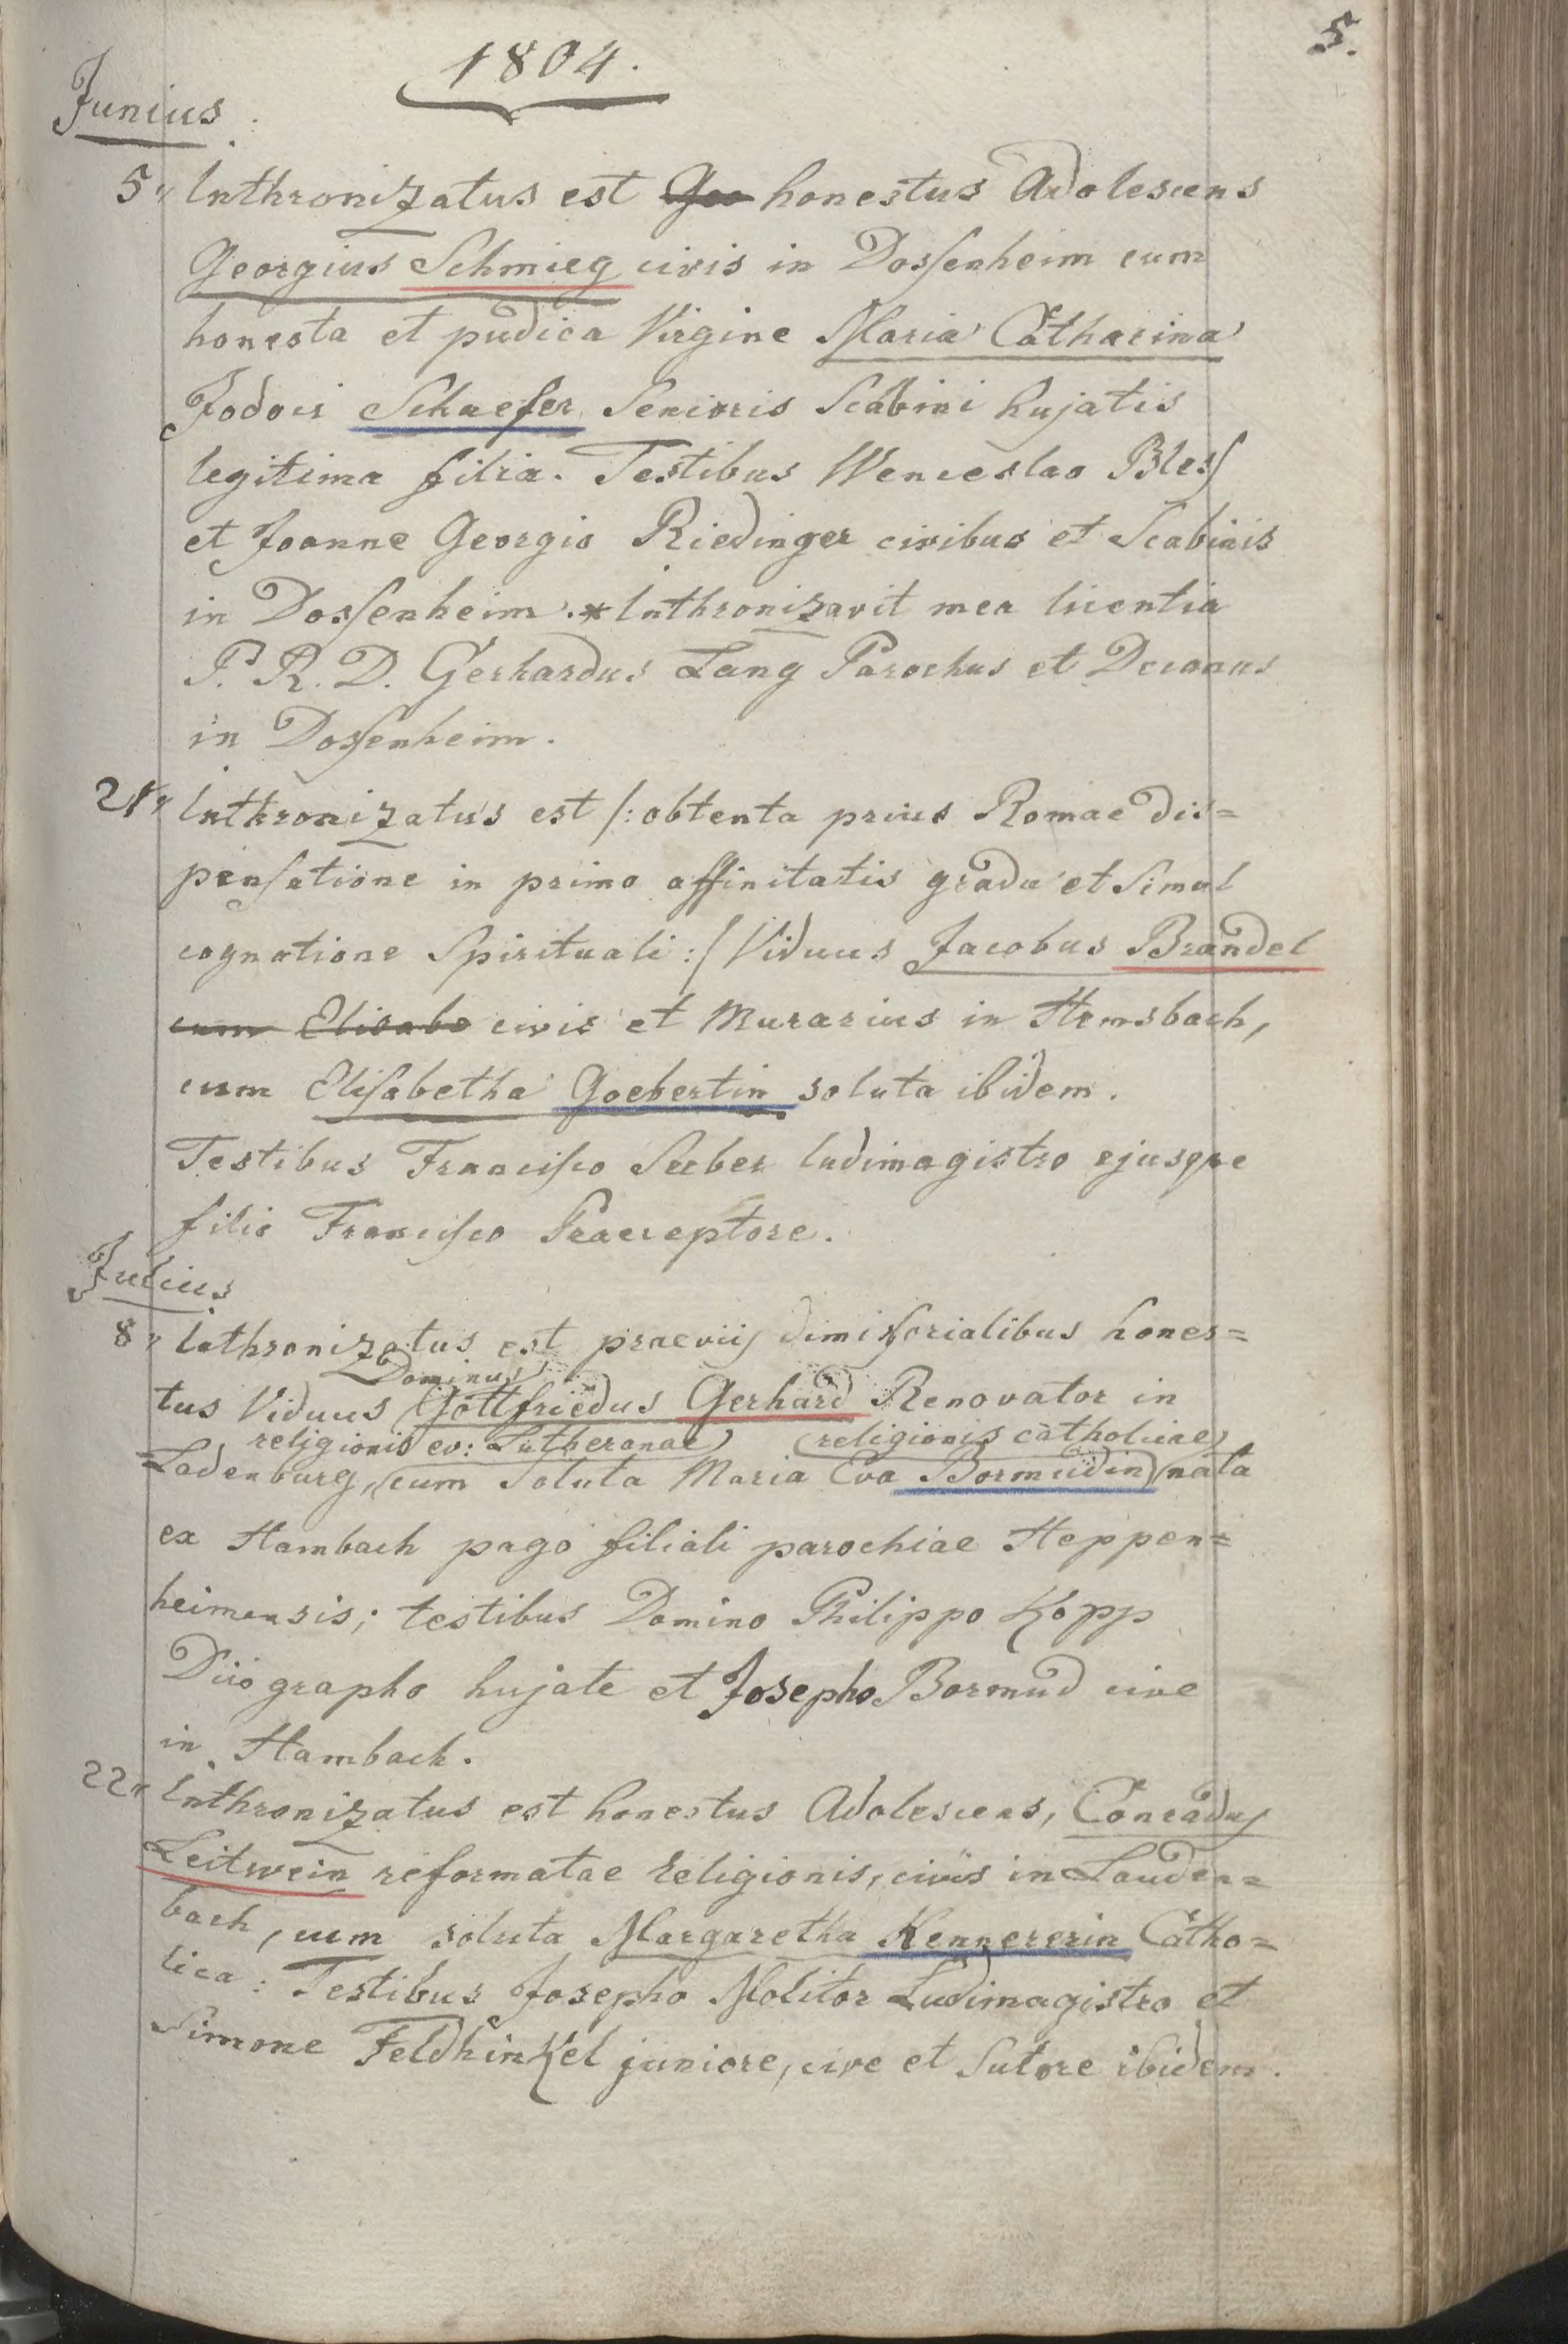 5.
1804.
Junius
5. Inthronizatus est Geo honestus Adolescens
Georgius Schmieg civis in Dossenheim cum
honesta et pudica Virgine Maria Catharina
Jodoci Schaefer Senioris Scabini hujatis
legitima filia. Testibus Wenceslao Bless
et Joanne Georgio Riedinger civibus et Scabinis
in Dossenheim.* Inthronizavit mea licentia
P. R. D. Gerhardus Lang Parochus et Decanus
in Dossenheim.
21. Inthronizatus est /: obtenta prius Romae dis=
pensatione in primo affinitatis gradu et Simul
cognatione Spirituali :/ Viduus Jacobus Brandel
cum Elisabe civis et Murarius in Hemsbach,
cum Elisabetha Goebertin soluta ibidem.
Testibus Francisco Seeber ludimagistro ejusque
filio Francisco Praeceptore.
Julius
8. Inthronizatus est praeviis dimissorialibus hones=
Dominus
tus Viduus Gottfriedus Gerhard Renovator in
religionis ev: Lutheranae religionis catholicae
Ladenburg, cum Soluta Maria Eva Bormudin nata
ex Hambach pago filiali parochiae Heppen=
heimensis; testibus Domino Philippo Kopp
grapho hujate et Josepho Bormud cive
in Hambach.
22. Inthronizatus est honestus Adolescens, Conradus
Leitwein reformatae religionis, civis in Lauden=
bach, cum soluta Margaretha Kennererin Catho=
lica: Testibus Josepho Molitor Ludimagistro et
Simone Feldhinkel juniore, cive et Sutore ibidem.